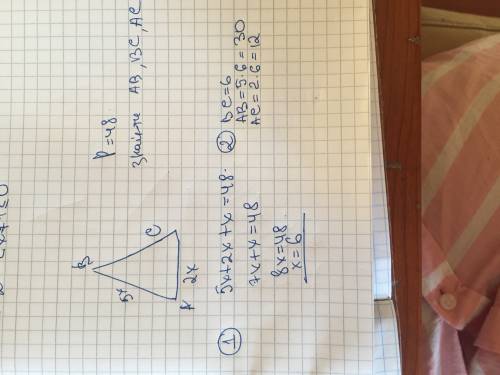 P=48
Знайти AB, BC, AC
B
5x
C
A
2x
1
5x+2x+x=48.
7x+x=48
8x=48
x=6
2
BC=6
AB=5·6=30
AC=2·6=12